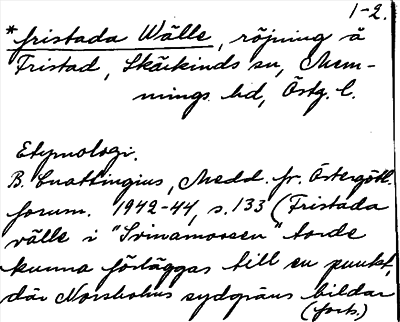 1-2.
*fristada Wälle, röjning å
Fristad, Skärkinds sn, Mem-
mings hd, Östg. l.
Etymologi.
B. Cnattingius, Medd. fr. Östergötl.
fornm. 1942-44, s. 133 (Fristada
välle i "Svinamossen" torde
kunna förläggas till en punkt,
där Norsholms sydgräns bildar
(forts.)